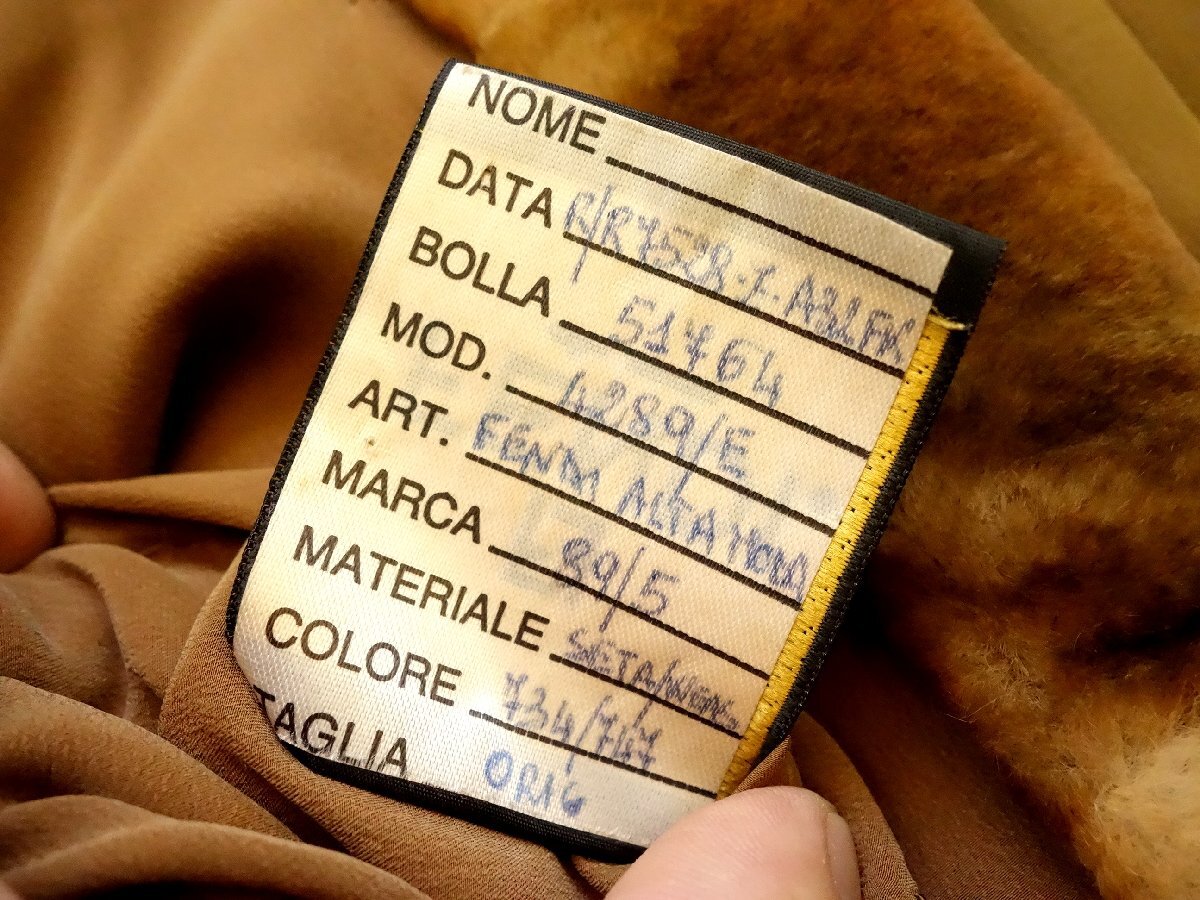 NOME
DATA R/R7528-Z-A32FK
BOLLA 51764
MOD. 4289/E
ART. FENDI ALTA MODA
MARCA 89/5
MATERIALE SETA/
COLORE 734/747
TAGLIA ORIG